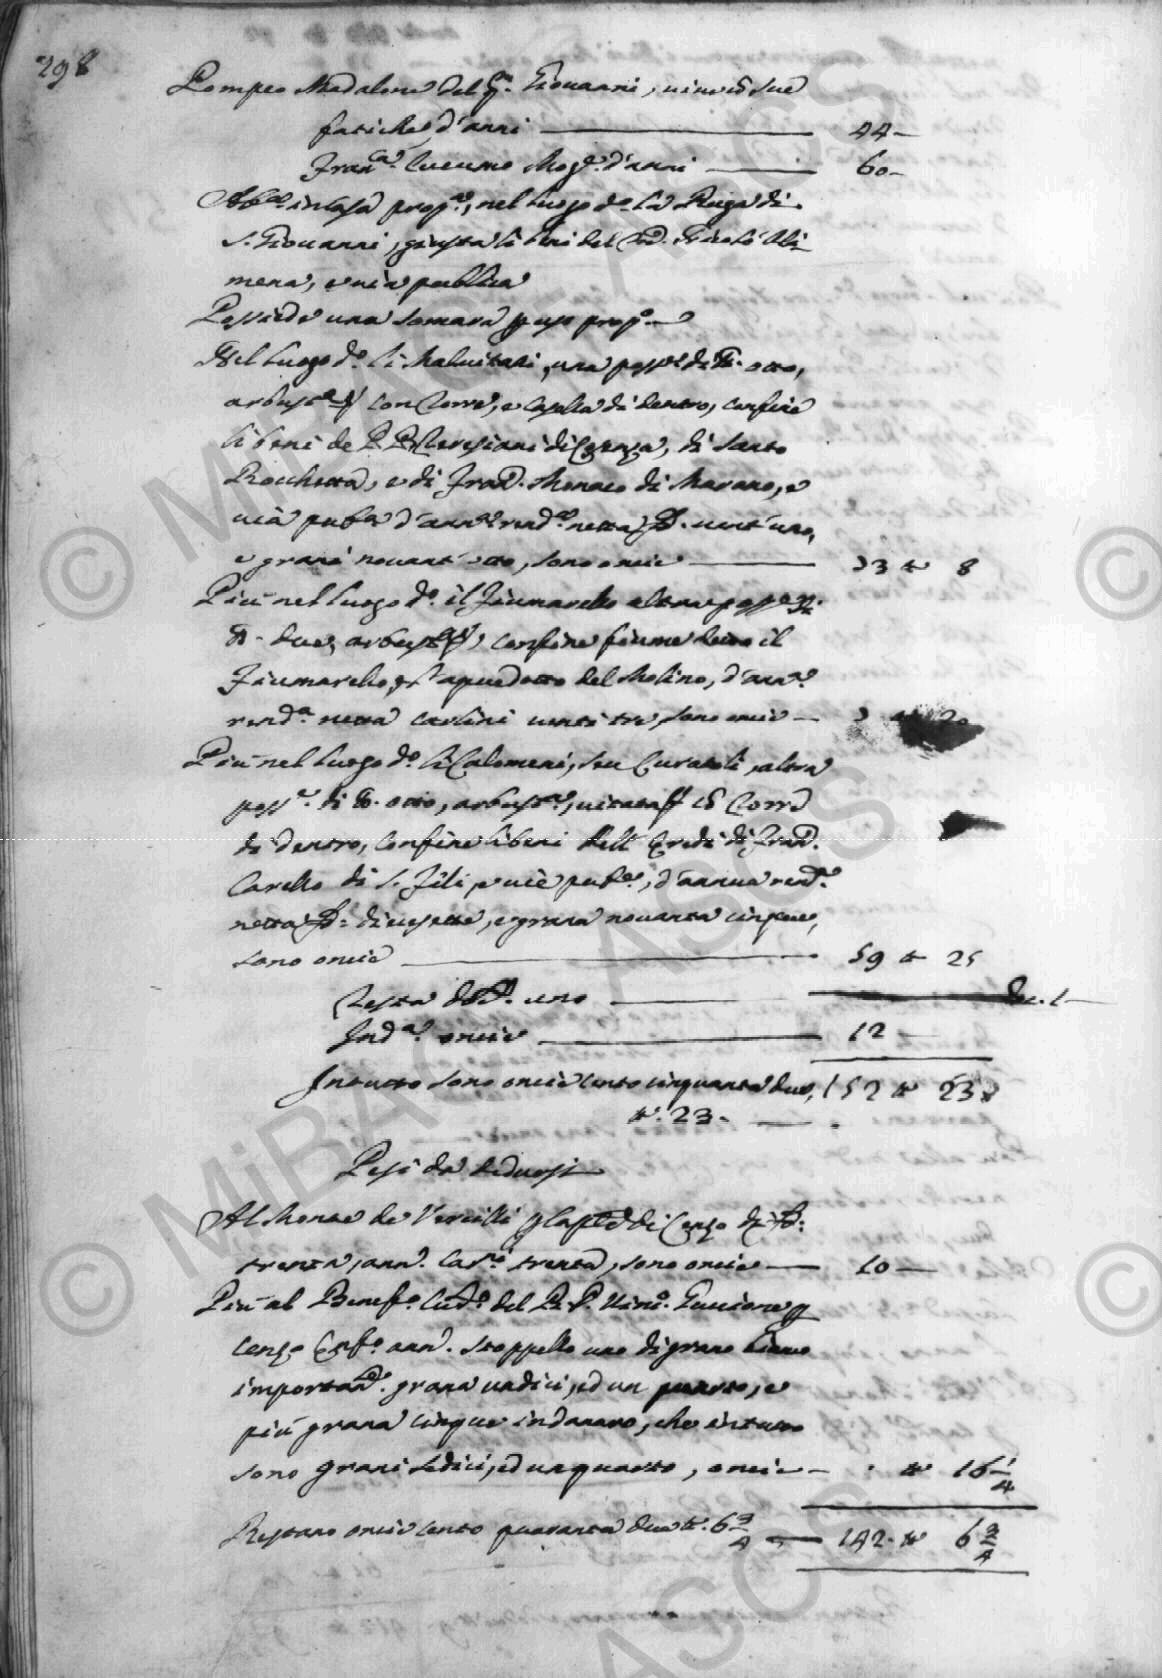 298
Pompeo Madalone del q.m Giovanni, vive cõ sue
fatiche, d'anni 44
Fran.ca Lucumo Mog.e d'anni 60
Ab.no in casa prop.a, nel luogo d.o la Ruga di
S. Giovanni, giusta li beni del
mena, e via publica
Possiede una somara p uso prop.o
Nel luogo d.o li Malvitani, una poss.e di tt. otto,
arbust.a con Torre, e Casella di dentro, confine
li beni de P.P. Teresiani di Cosenza, di Santo
Rocchetta, e di Fran.o Monaco di Marano, e
via pub.a d'annua rend.a netta D. vent'uno,
e grani novant'otto, sono oncie 73 tt 8
Più nel luogo d.o il Fiumarello altra poss.e di
tt. due, arbust.a, confine fiume detto il
Fiumarello, e l'aquedotto del Molino, d'ann.a
rend.a netta carlini venti tre, sono oncie 7 20
Più nel luogo d.o li Calomeni, seu Curatoli, altra
poss.e di tt. otto, arbust.a, vitata cõ Torre
di dentro, confine li beni dell'Eredi di Fran.o
Carello di S. Fili, e vie pub.e, d'annua rend.a
netta D. diecisette, e grana novanta cinque,
sono oncie 59 tt 25
Testa D. uno Duc. 1
Ind.a oncie 12
In tutto sono oncie cento cinquanta due, 152 tt 23
tt. 23
Pesi da dedursi
Al Monte de Vercilli p Cap.le di Censo di D.
trenta, ann. Car.ni trenta, sono oncie 10
Più al Benef.o del R. P. p
Censo Enf.o ann. stoppello uno di grano
importan. grana undici, ed un quarto, e
più grana cinque in danaro, che in tutto
sono grani sedici, ed un quarto, oncie . tt 16 1/4
Restano oncie cento quaranta due tt. 6 3/4 142. tt 6 3/4
© MiBAC - ASCS
© MiBAC - ASCS
© MiBAC - ASCS